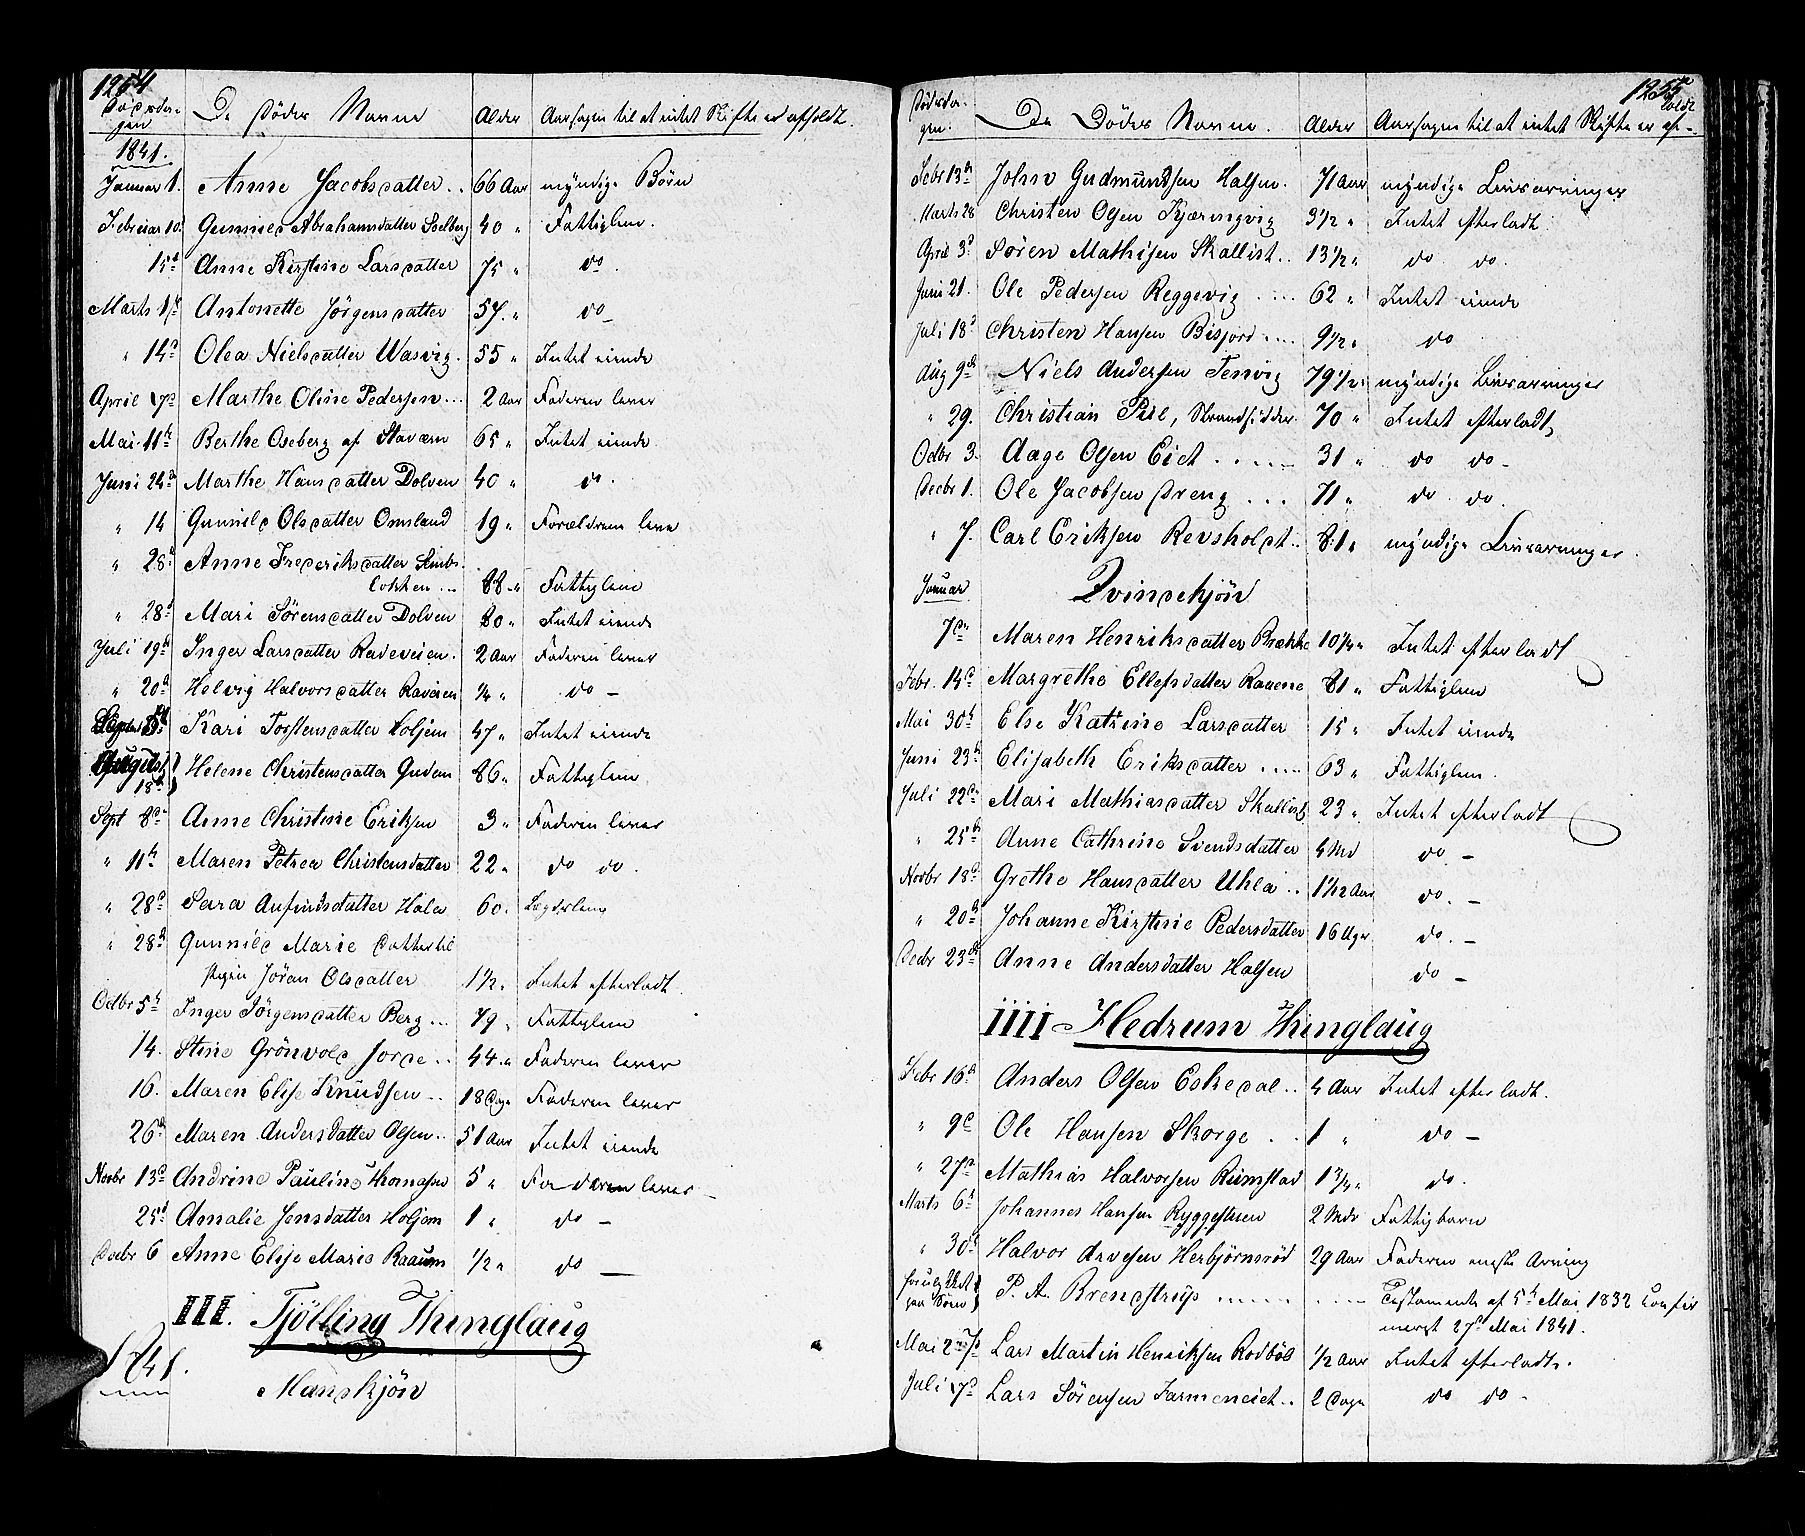 1254
Dødsda-
gen
De Dødes Navne
Alder
Aarsagen til at intet Skifte er afholdt.
1841.
Januar 1. Anne Jacobsdatter .. 66 Aar myndige Børn
Februar 10. Gunnild Abrahamsdatter Solberg 40 " Fattiglem.
15d Anne Kirstine Larsdatter 75 " do.
Marts 1st Antonette Jørgensdatter 57. " do -
" 14d Olea Nielsdatter Wasvig. 55 " Intet eiende
April 17d Marthe Oline Pedersen ... 2 Aar Faderen lever
Mai 11te Berthe Oseberg af Staværn 65 " Intet eiende
Juni 24d Marthe Hansdatter Dolven 40 " do.
" 14 Gunnild Olsdatter Omsland 19 " Forældrene leve
" 28d Anne Frederiksdatter
lokken ... 88 - " Fattiglem
" 28d Mari Sørensdatter Dolven 80 " Intet eiende
Juli 19d Inger Larsdatter Radeveien. 2 Aar Faderen lever
" 20d Helvig Halvorsdatter Raveien 1/4 " do -
Kari Torstensdatter Holjem 47 " Intet eiende
August
18d Helene Christensdatter Guden 86 " Fattiglem
Sept 8de Anne Christine Eriksen 3 " Faderen lever
" 11te Maren Petrea Christensdatter 22 " do do.
" 28d Sara Anfindsdatter Hale 60. Lægdslem
" 28d Gunnild Marie Datter til
Pigen Jöran Olsdatter 1 1/2 " Intet efterladt.
Octbr 5te Inger Jörgensdatter Berg ... 79 " Fattiglem
14. Stine Grönvold Jorde .. 44 " Faderen lever
16. Maren Elise Knudsen .. 18 Dage Faderen lever
26d Maren Andersdatter Olsen .. 51 Aar Intet eiende
Novbr 13d Andrine Pauline Thomasen 5 " Faderen lever -
25d Amalie Jensdatter Holjem 1 " do -
Decbr 6 Anne Elise Marie Raaum 1/2 " do -
III. Tjölling Thinglaug
1841.
Mandkjön
1255
Dødsda-
gen.
De Dödes Navne.
Alder
Aarsagen til at intet Skifte er af-
holdt
Febr 13de John Gudmundsen Halsen. 71 Aar myndige Livsarvinger
Marts 28 Christen Olsen Kjæringvig 3 1/2 " Intet efterladt
April 3d Sören Mathisen Skallist. 13 1/2 " do do.
Juni 21. Ole Pedersen Reggevig .... 62 " Intet eiende
Juli 18d Christen Hansen Bisjord .... 9 1/2 " do
Aug 9de Niels Andersen Tenvig 79 1/2 " myndige Livsarvinger
" 29. Christian Piil, Strandsidder 70 " Intet efterladt,
Octbr 3. Aage Olsen Eid ..... 31 " do do -
Decbr 1. Ole Jacobsen Dreng ... 71 " do do.
" 7. Carl Eriksen Revsholdt .. 81 " myndige Livsarvinger.
Januar Qvindekjön
7de Maren Henriksdatter Brække 10 1/4 " Intet efterladt
Febr. 14d Margrethe Ellefsdatter Raaene 81 " Fattiglem
Mai 30te Else Katrine Larsdatter 15 " Intet eiende
Juni 23d Elisabeth Eriksdatter ..... 63 " Fattiglem.
Juli 22de Mari Mathiasdatter Skallist 23 " Intet efterladt
" 25de Anne Cathrine Svendsdatter 4 Md do -
Novbr 18d Grethe Hansdatter Uhla .. 1 1/12 Aar do. -
" 20de Johanne Kirstine Pedersdatter 16 Uger do. -
Decbr 23de Anne Andersdatter Halsen do -
IIII - Hedrum Thinglaug
Febr 16d Anders Olsen Eskedal .. 4 Aar Intet efterladt.
" 9d Ole Hansen Skorge .. 1 " do -
" 27d Mathias Halvorsen Rimstad 1 3/4 " do.
Marts 6d Johannes Hansen Ryggesteen 2 Mdr Fattigbarn
" 30d Halvor Arvesen Herbjörnsröd 29 Aar Faderen eneste Arving
P. A. Brendstrup ....... ..... Testamente af 5te Mai 1832 confir
meret 27d Mai 1841.
Mai Lars Martin Henriksen Rodböl 1/2 Aar Intet efterladt.
Juli 17d Lars Sörensen Farmeneiet .. 2 Dage do do -